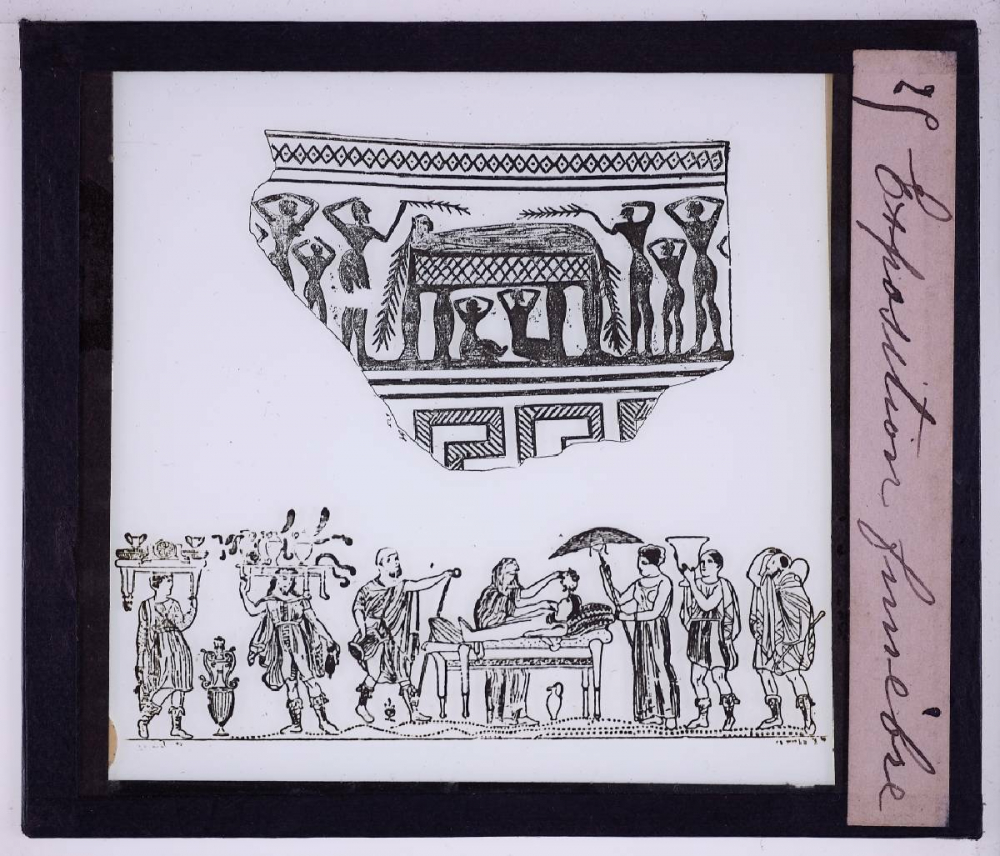 Exposition funèbre